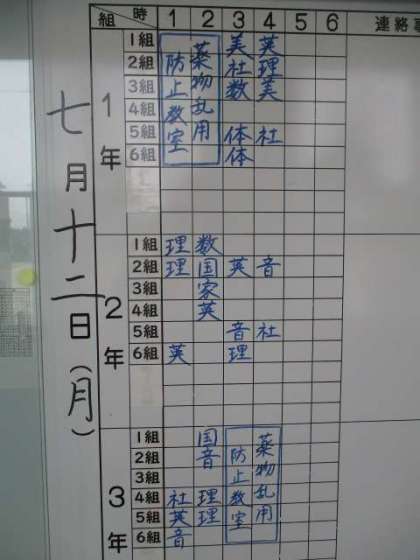 七月十二日(月)
組 時 1 2 3 4 5 6 連絡事
1年
1組 美 英
2組 社 理
3組 数 美
4組
5組 体 社
6組 体
薬物乱用
防止教室
2年
1組 理 数
2組 理 国 英 音
3組 家
4組 英
5組 音 社
6組 英 理
3年
1組 国
2組 音
3組
4組 社 理
5組 英 理
6組 音
薬物乱用
防止教室